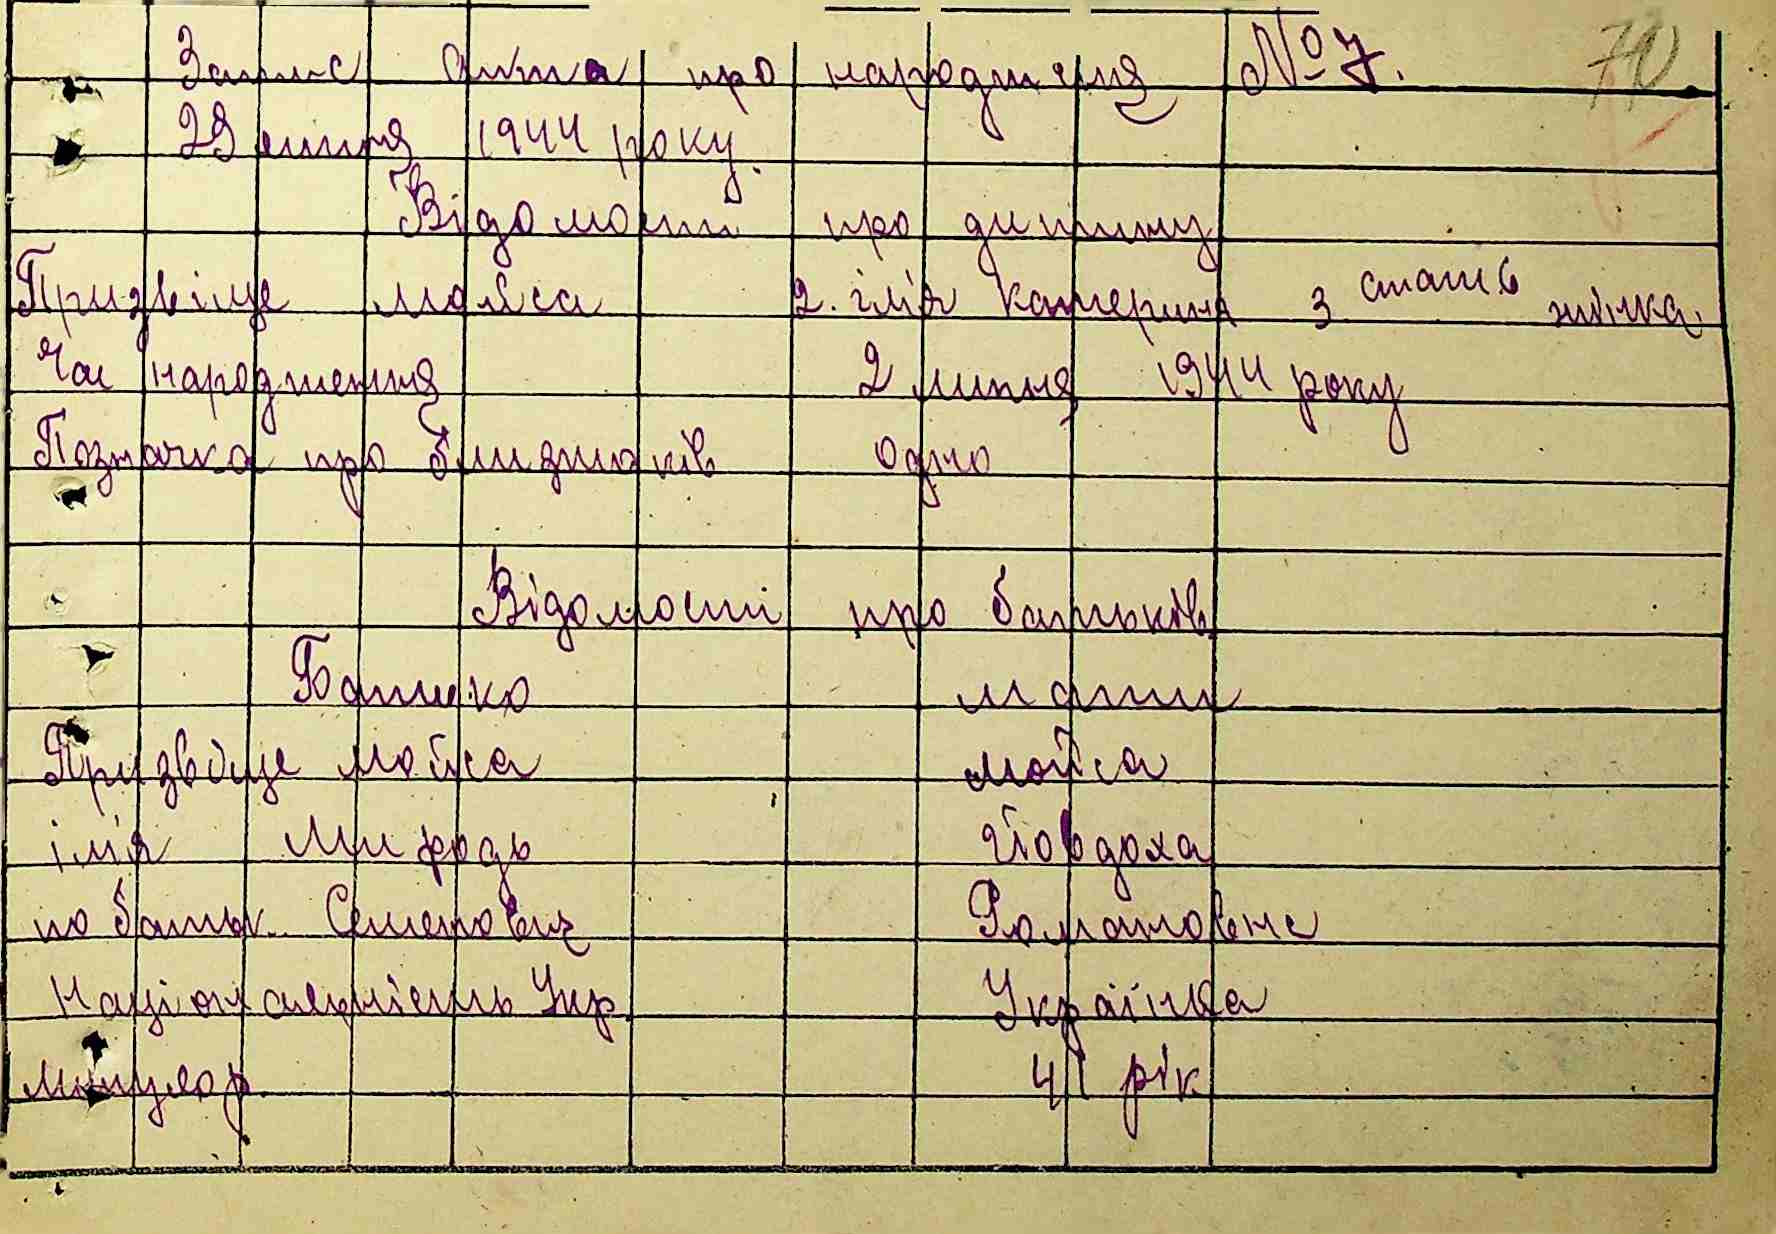 Запис акта про народження № 7. 70
29 липня 1944 року.
Відомості про дитину
Призвіще Мойса 2. імя Катерина 3 стать жінка
Час народження 2 липня 1944 року
Позначка про близнюків одно
Відомості про батьків
Батько мати
Призвіще Мойса Мойса
імя Йовдоха
по батьк. Семенович Романовна
Національність Укр. Українка
41 рік